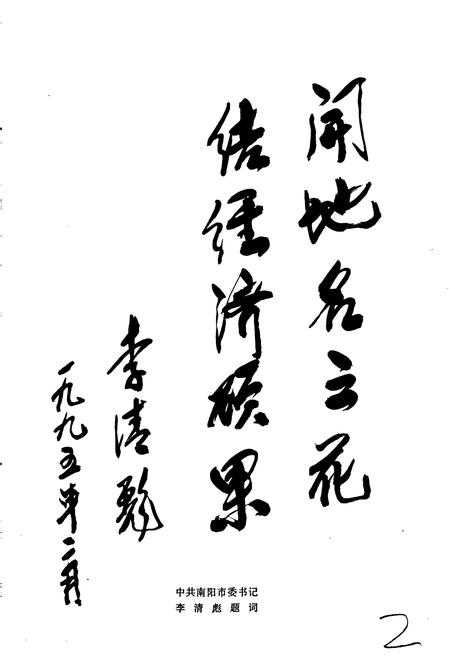 开地名之花
结经济硕果
李清彪
一九九五年二月
中共南阳市委书记
李清彪题词
2